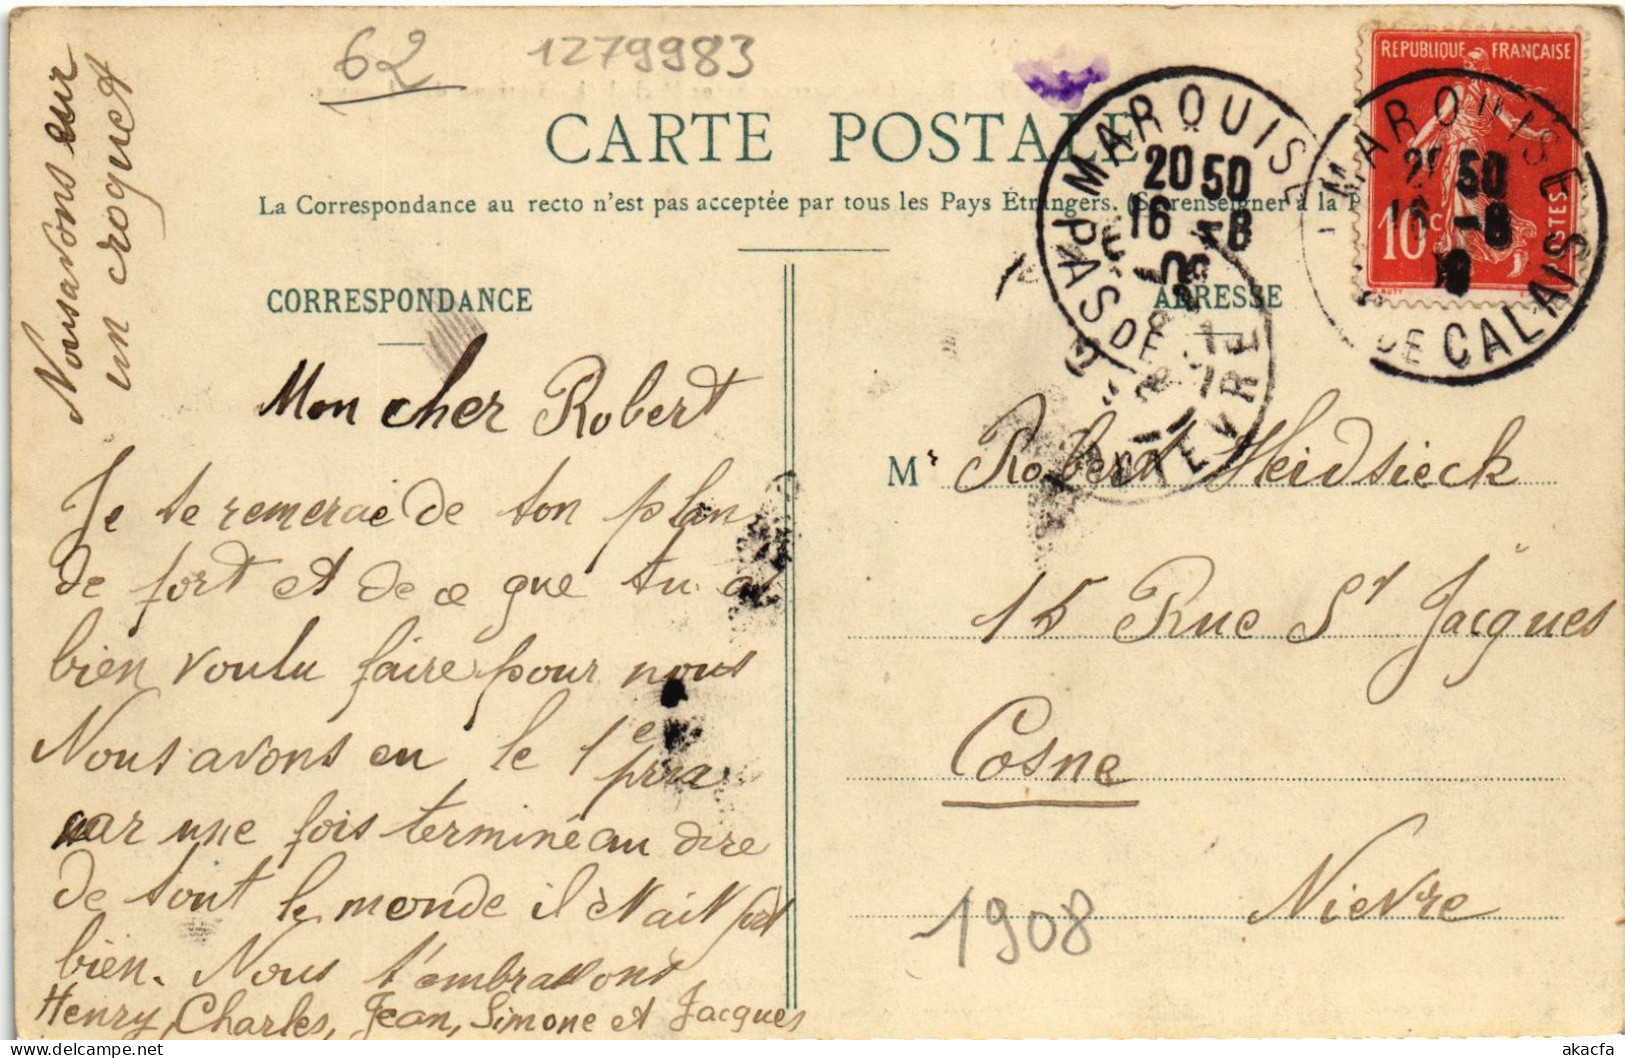 62
1279983
CARTE POSTALE
La Correspondance au recto n'est pas acceptée par tous les Pays Étrangers. (Se renseigner à la P
REPUBLIQUE FRANÇAISE
10c
POSTES
MARQUISE
20 50
16 -8
PAS DE
MARQUISE
50
16 -8
DE CALAIS
NIEVRE
CORRESPONDANCE
ADRESSE
Nous avons eu
un croquet
Mon cher Robert
Je te remeraie de ton plan
de fort et de ce que tu as
bien voulu faire pour nous
Nous avons eu le 1e prix
car une fois terminé au dire
de tout le monde il était fort
bien. Nous t'embrassons
Henry, Charles, Jean, Simone et Jacques
Mr Robert Heidsieck
15 Rue St Jacques
Cosne
Nièvre
1908
akacfa